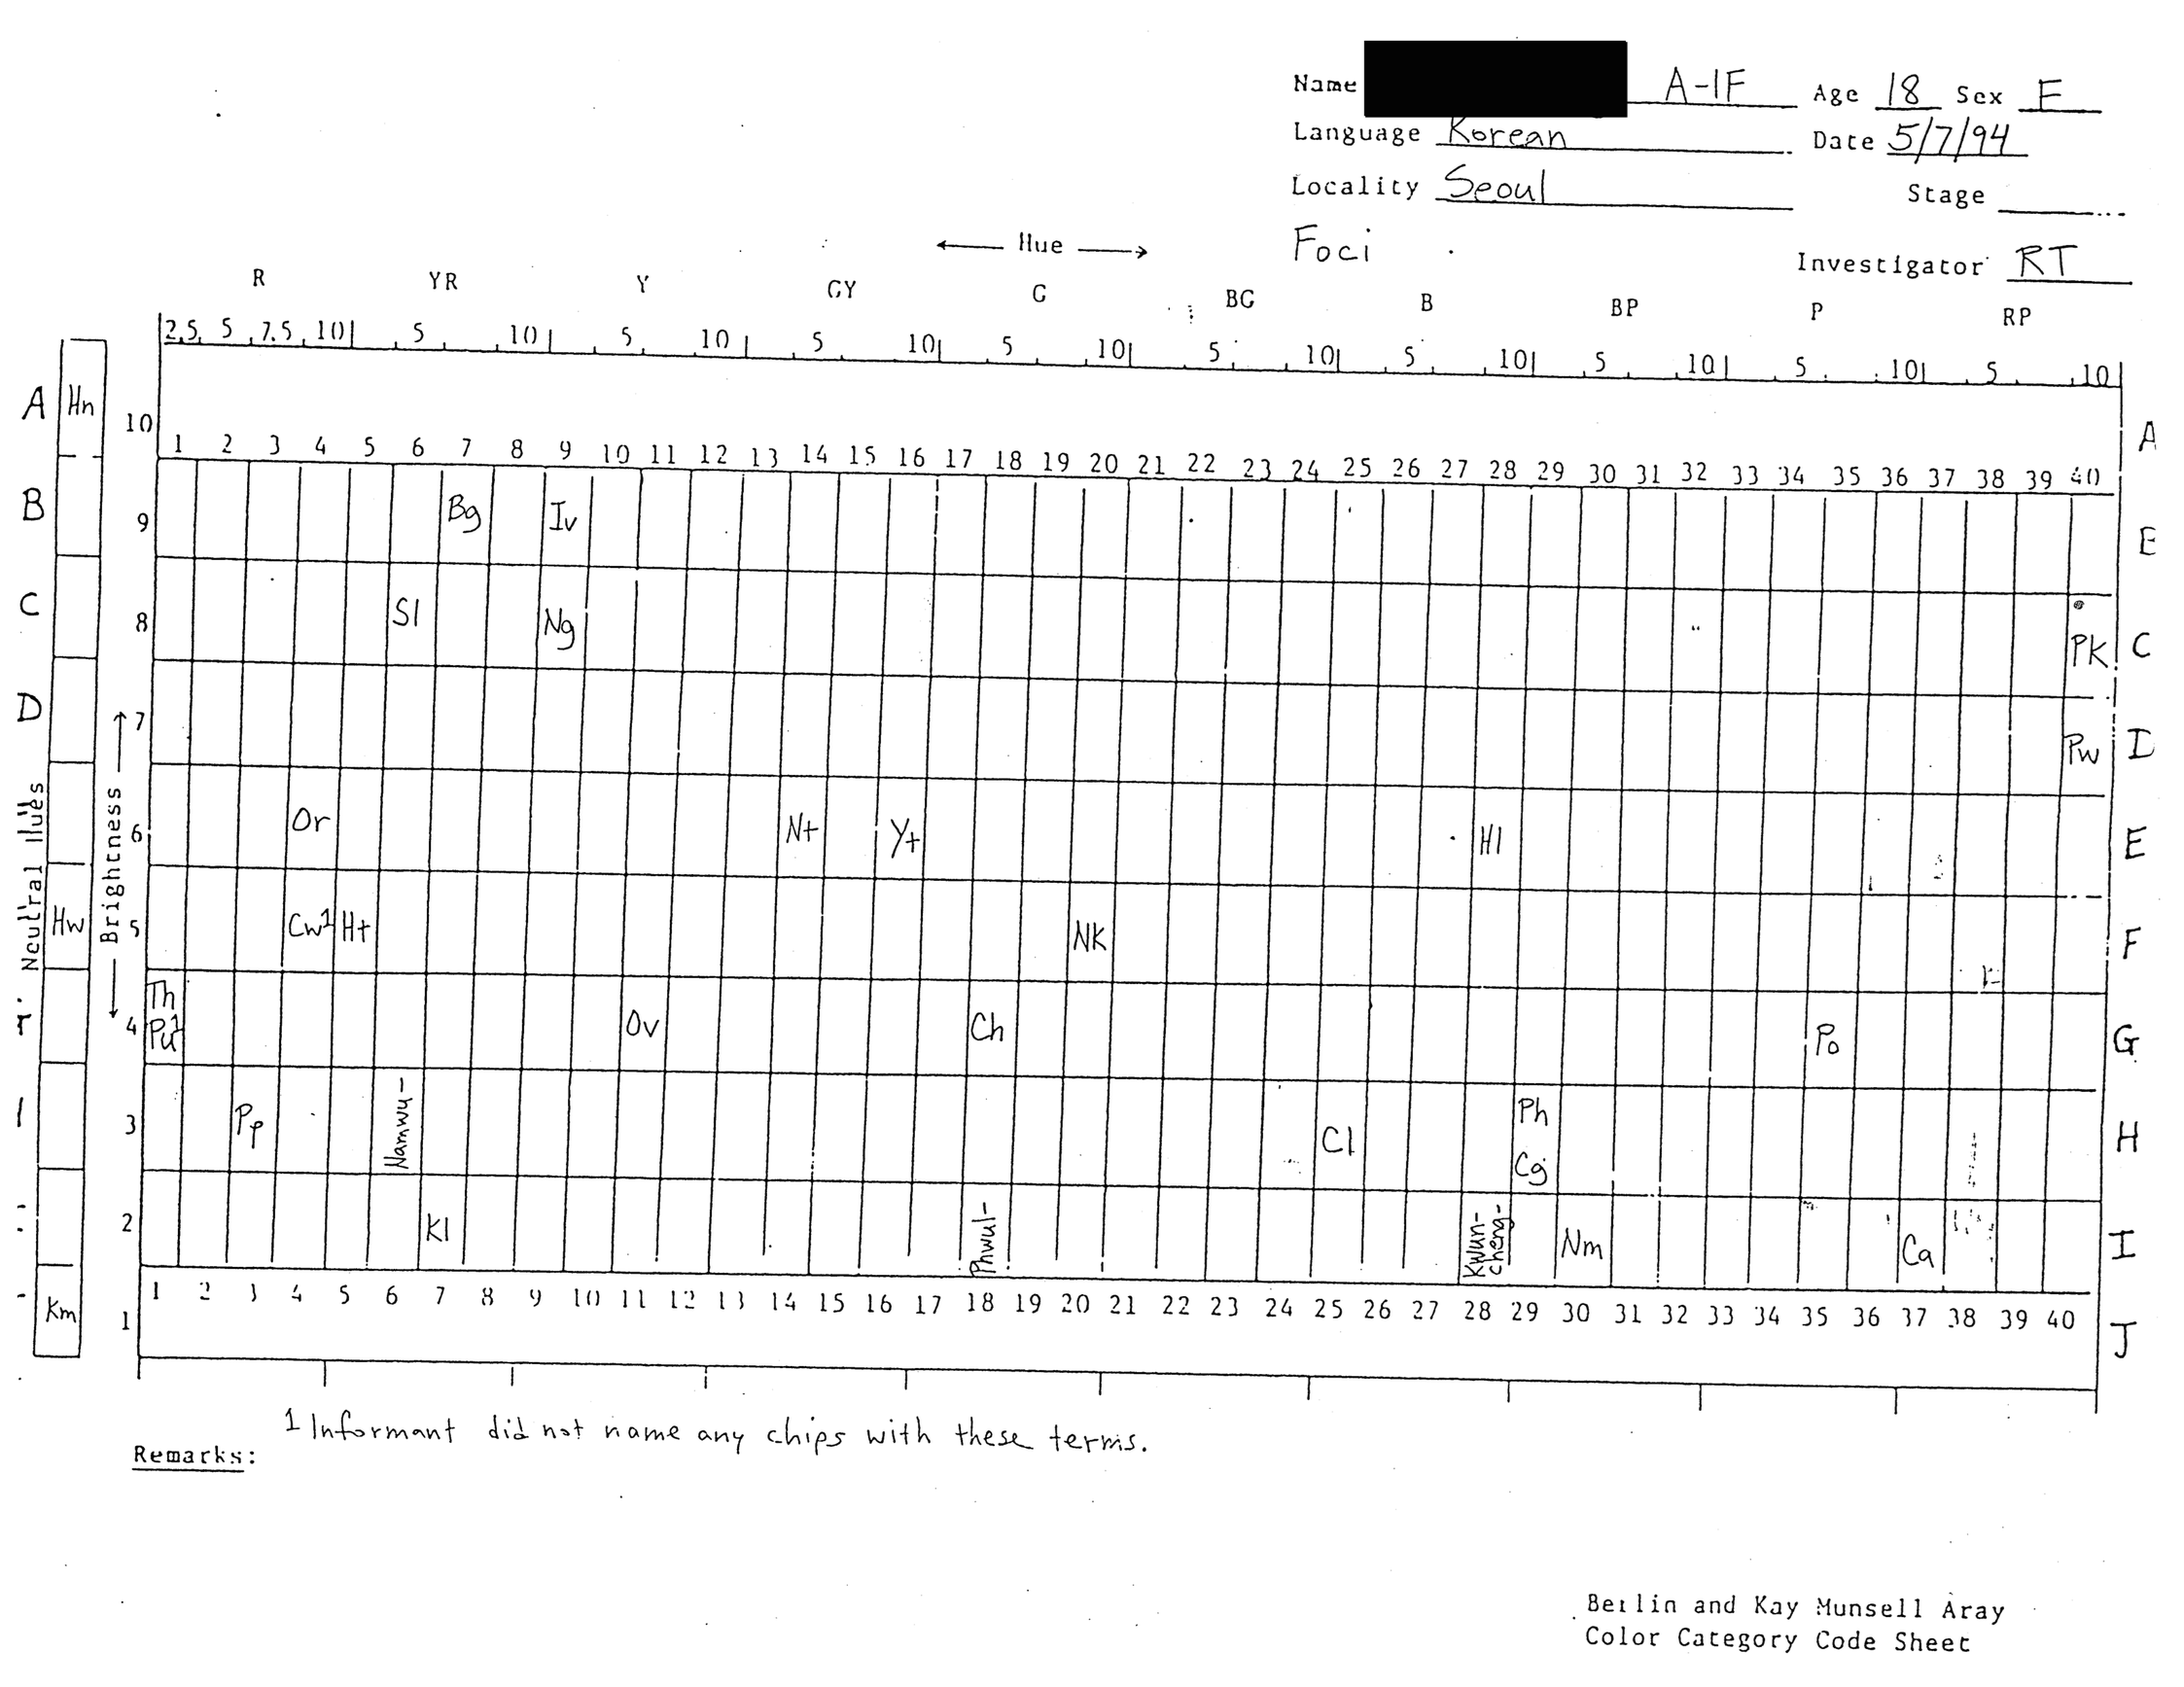 Name A-1F Age 18 Sex F
Language Korean Date 5/7/94
Locality Seoul Stage
Foci
Investigator RT
← Hue →
R YR Y GY G BG B BP P RP
2.5 5 7.5 10 5 10 5 10 5 10 5 10 5 10 5 10 5 10 5 10 5 10
A Hn 10 A
1 2 3 4 5 6 7 8 9 10 11 12 13 14 15 16 17 18 19 20 21 22 23 24 25 26 27 28 29 30 31 32 33 34 35 36 37 38 39 40
B 9 Bg Iv
C 8 Sl Ng PK C
D 7 Pw
Neutral Hues
← Brightness →
6 Or N+ Y+ Hl E
Hw 5 Cw1 H+ NK F
4 Th Pu1 Ov Ch Po G
3 Pp Namwu- Cl Ph Cg H
2 Kl Phwul- Kwun-cheng- Nm Ca I
1 2 3 4 5 6 7 8 9 10 11 12 13 14 15 16 17 18 19 20 21 22 23 24 25 26 27 28 29 30 31 32 33 34 35 36 37 38 39 40
Km 1 J
1 Informant did not name any chips with these terms.
Remarks:
Berlin and Kay Munsell Aray
Color Category Code Sheet